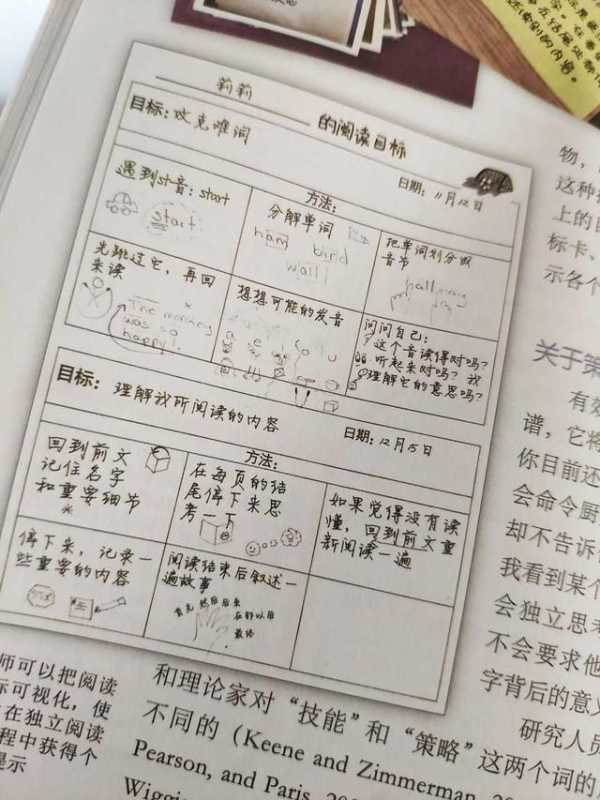 莉莉 的阅读目标
目标：攻克难词
日期：11月12日
方法：
遇到st音：start
start
分解单词
ham bird
wall
把单词划分成
音节
先跳过它，再回
来读
The monkey
was so
happy!
想想可能的发音
a e i o u
问问自己：
这个音读得对吗？
听起来对吗？我
理解它的意思吗？
目标：理解我所阅读的内容
日期：12月15日
方法：
回到前文
记住名字
和重要细节
在每页的结
尾停下来思
考一下
如果觉得没有读
懂，回到前文重
新阅读一遍
停下来，记录一
些重要的内容
阅读结束后叙述一
遍故事
首先 然后 后来
在那以后
最终
物，
这种
上的目
标卡、
示各个
关于策
有效
谱，它将
你目前还
会命令厨
却不告诉
我看到某个
会独立思
不会要求他
字背后的意义
研究人员
师可以把阅读
标可视化，使
在独立阅读
程中获得个
提示
和理论家对“技能”和“策略”这两个词的
不同的（Keene and Zimmerman,
Pearson, and Paris,